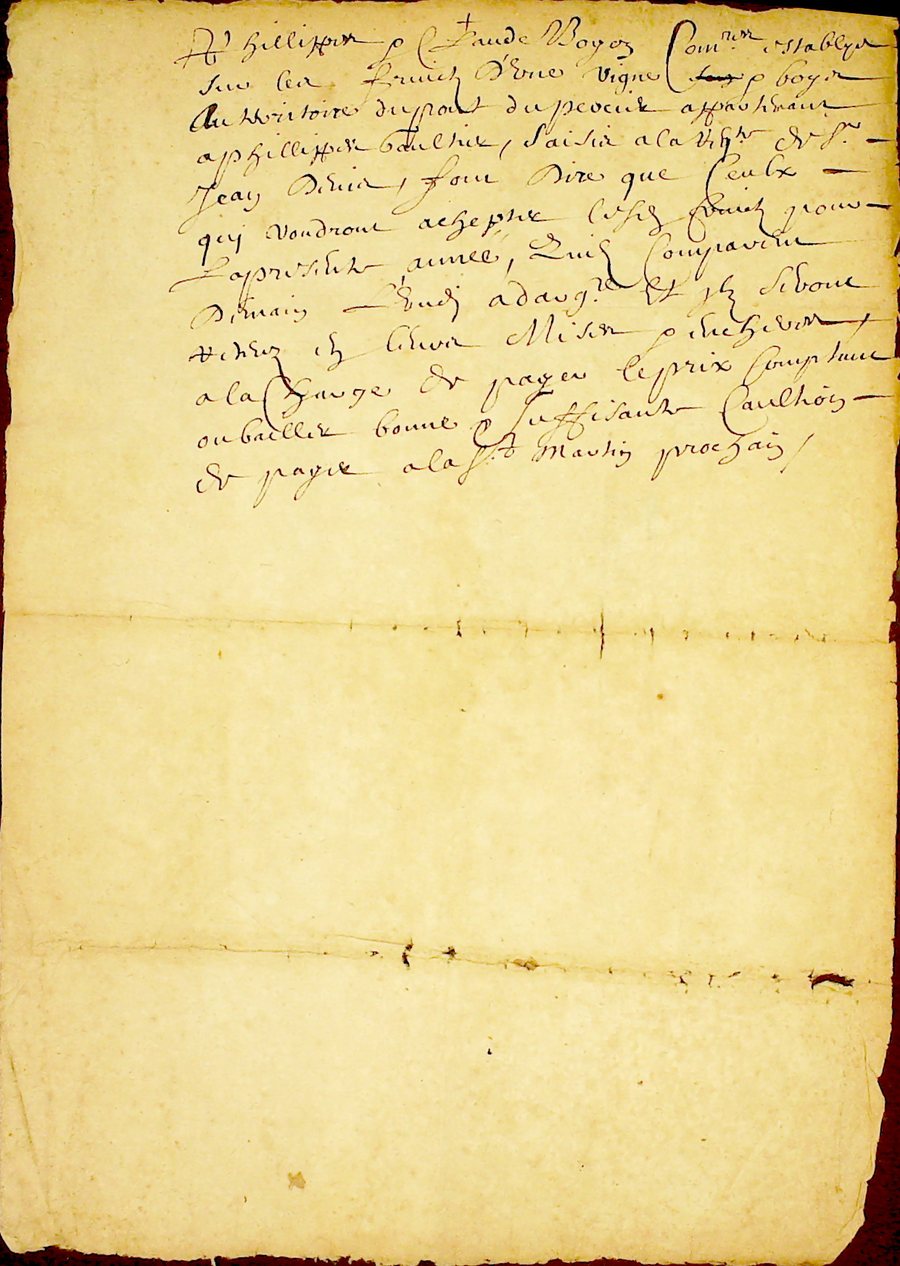 Phillippes & Claude Boyon Com.res establys
sur les fruictz d'Une vigne & boys
Au territoire du pont du percier appartenant
a phillippes Gaultier, saisis a la req.te de s.r
Jean Denis, font Dire que Ceulx
quj voudront achepter lesd fruictz pour
La presente année, Quilz Comparent
Demain Lundj a dang.te Et jlz seront
receuz En leurs Mises & encheres,
a la Charge de payer le prix Comptant
ou bailler bonne & suffisante Caultion
de payer a la S.t Martin prochain /